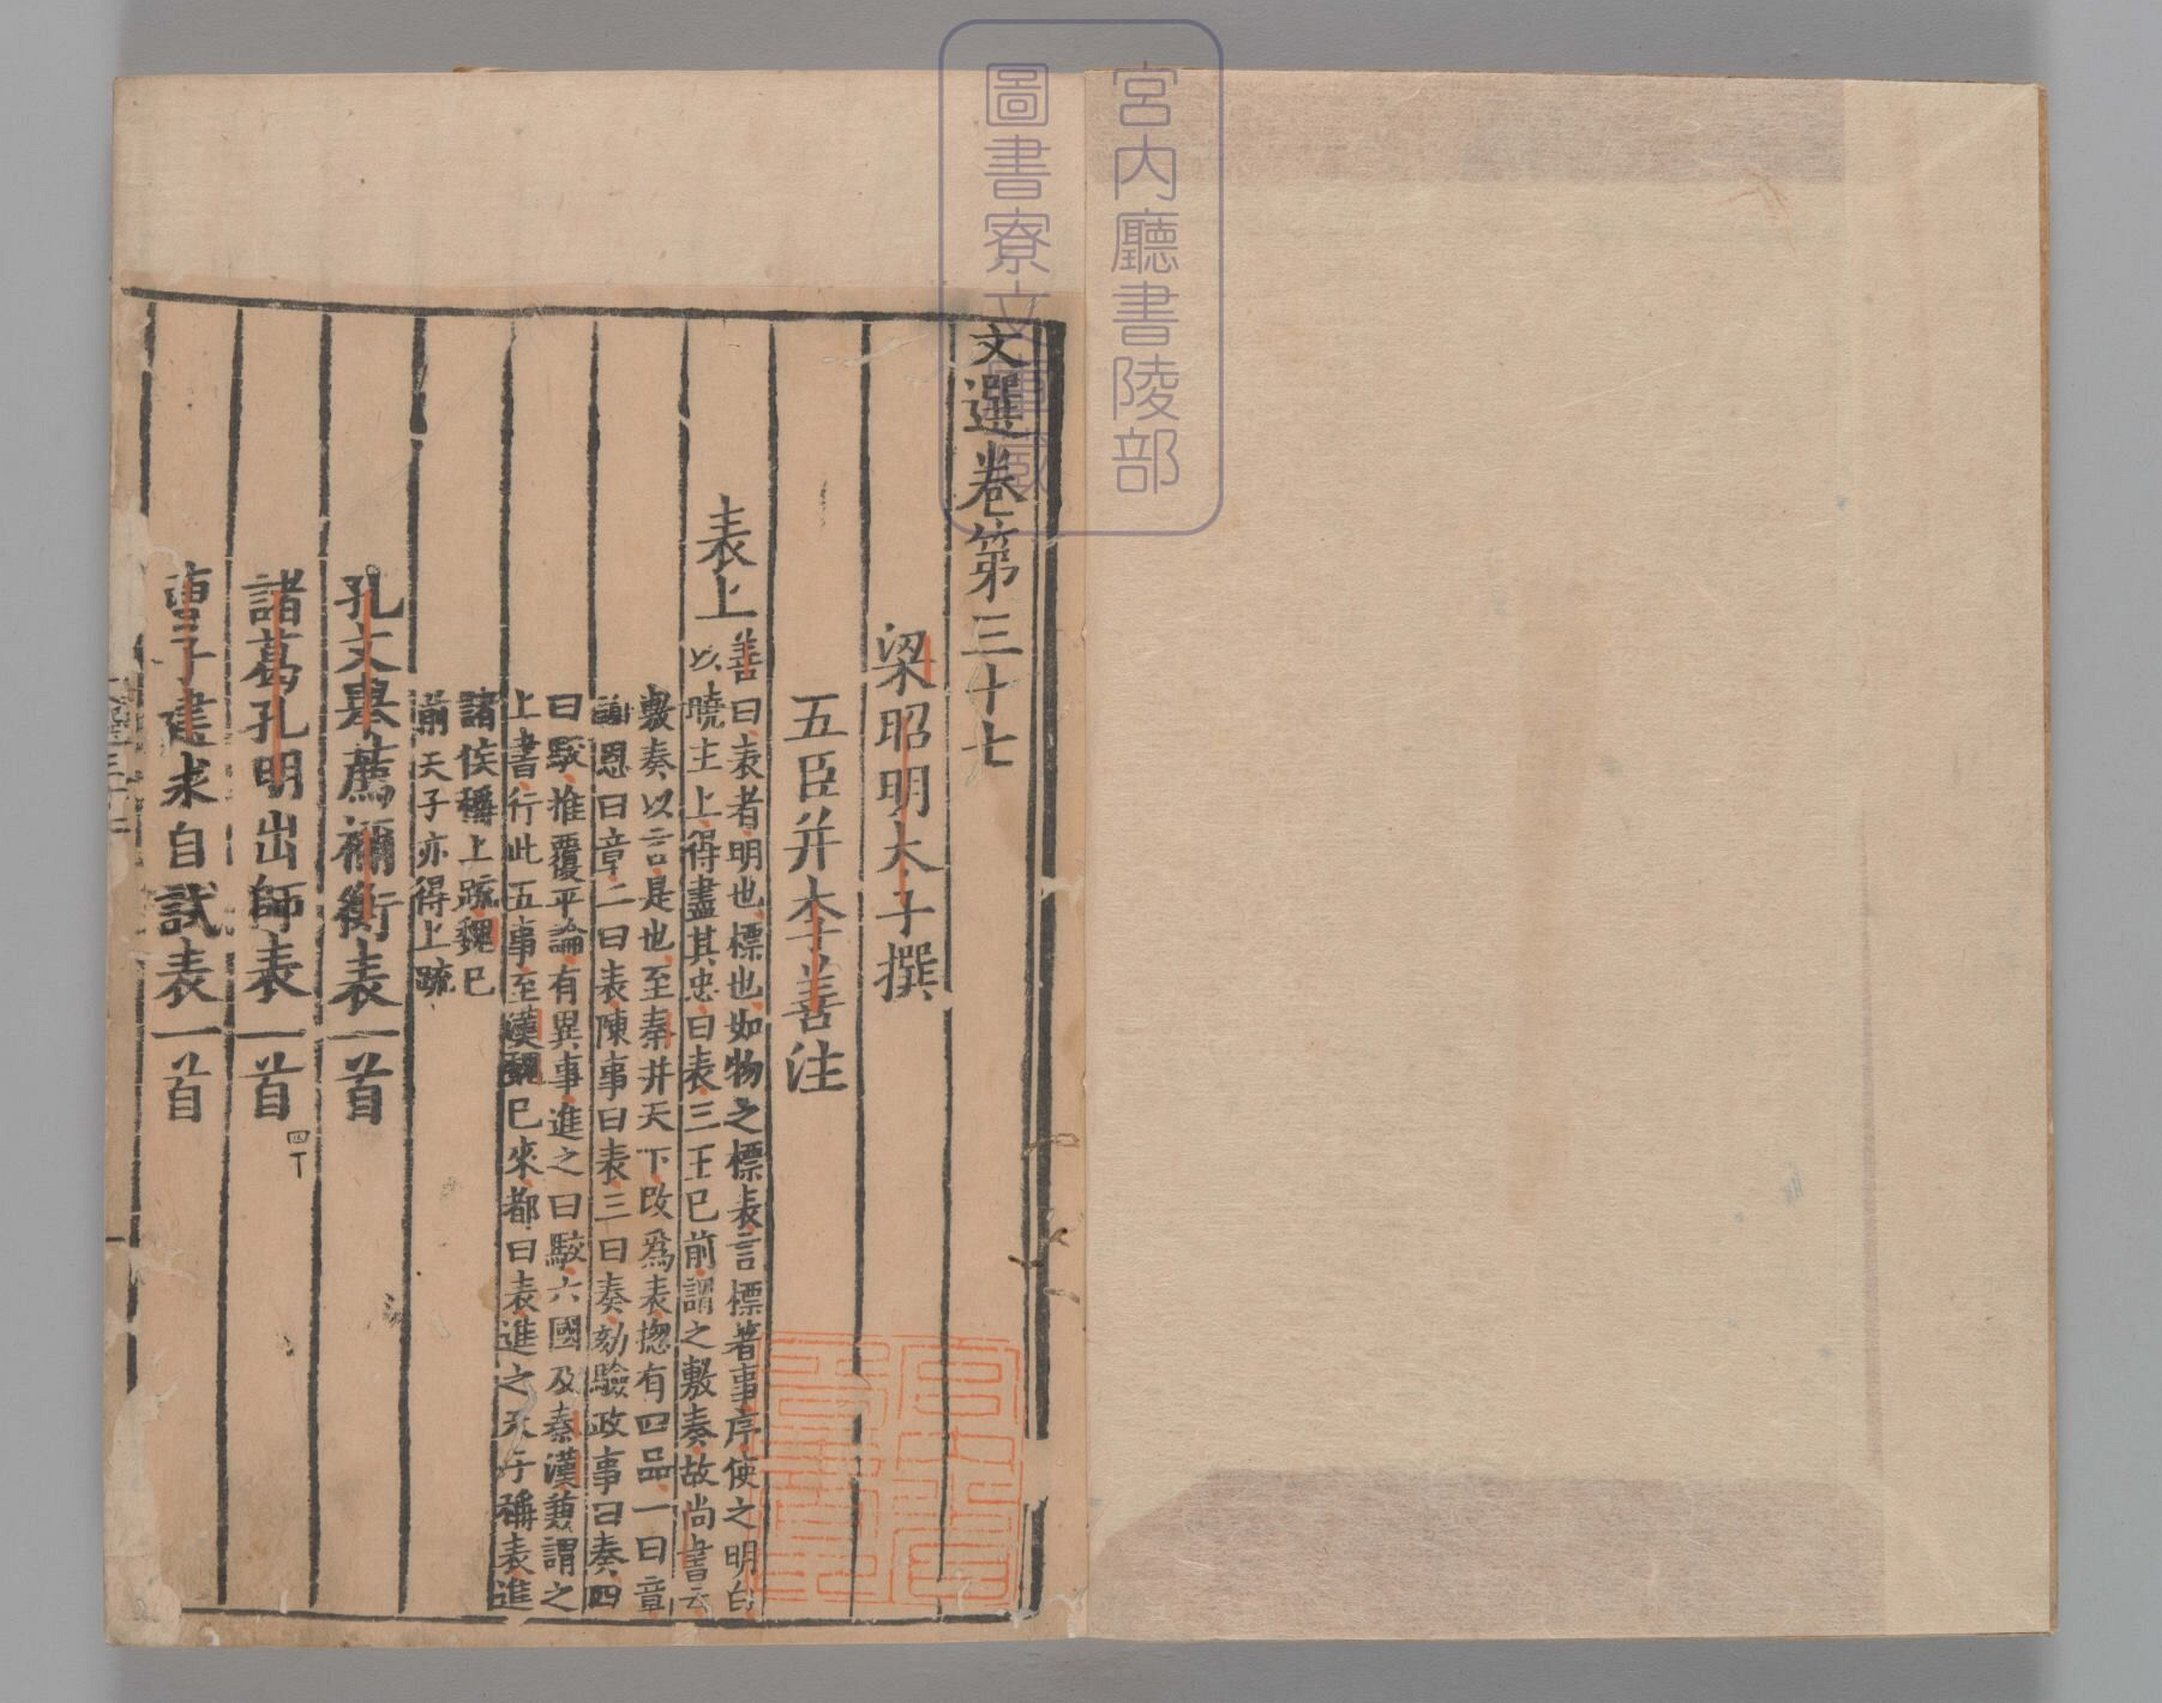 宮内廳書陵部
圖書寮文庫蔵
文選卷第三十七
梁昭明太子撰
五臣并李善注
表上
善曰表者明也標也如物之標表言標著事序使之明白
以曉主上得盡其忠曰表三王已前謂之敷奏故尚書云
敷奏以言是也至秦并天下改爲表揔有四品一曰章
謝恩曰章二曰表陳事曰表三曰奏劾驗政事曰奏四
曰駮推覆平論有異事進之曰駮六國及秦漢兼謂之
上書行此五事至漢魏已來都曰表進之天子稱表進
諸侯稱上疏魏已
前天子亦得上疏
孔文舉薦禰衡表一首
諸葛孔明出師表一首
曹子建求自試表一首